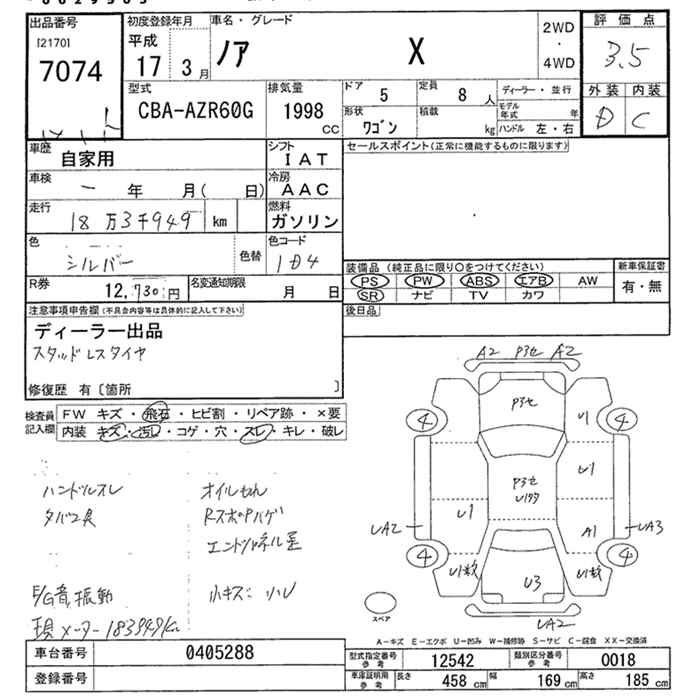 出品番号 初度登録年月 車名・グレード 2WD ・ 4WD 評価点
[2170] 7074 平成 17 3月 ノア X 3.5
型式 排気量 ドア 5 定員 8人 ディーラー・並行 外装 内装
CBA-AZR60G 1998 CC 形状 ワゴン 積載 kg モデル年式 年 ハンドル 左・右 D C
車歴 自家用 シフト IAT セールスポイント(正常に機能するものに限ります)
車検 ー 年 月( 日) 冷房 AAC
走行 18万3千949 km 燃料 ガソリン
色 シルバー 色替 色コード
R券 12,730円 名変通知期限 月 日
装備品 (純正品に限り〇をつけてください) 新車保証書
PS PW ABS エアB AW 有・無
SR ナビ TV カワ
後日品
注意事項申告欄(不具合内容等は具体的に記入して下さい)
ディーラー出品
スタッドレスタイヤ
修復歴 有〔箇所 〕
検査員記入欄 FW キズ・飛石・ヒビ割・リペア跡・×要
内装 キズ・汚れ・コゲ・穴・スレ・キレ・破レ
ハンドルスレ オイルせん
タバコ臭 RスポPハゲ
E/G音、振動
現メーター183949km
A2 P3セ A2
P3セ
4 4
U1
P3セ
U1
U1
UA2 A1 UA3
4 4
U1数 U3 U1数
UA2
スペア
A-キズ E-エクボ U-凹み W-補修跡 S-サビ C-腐食 XX-交換済
車台番号 0405288
登録番号
型式指定番号 参考 12542 類別区分番号 参考 0018
車庫証明用 参考 長さ 458 cm 幅 169 cm 高さ 185 cm